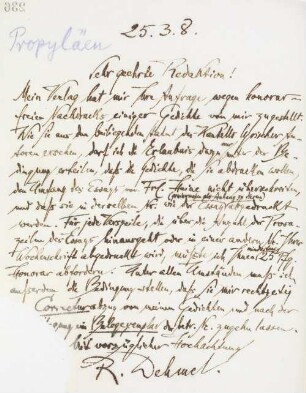 25. 3. 8.
Propyläen
Sehr geehrte Redaktion!
Mein Verlag hat mir Ihre Anfrage wegen honorar-
freien Nachdrucks einiger Gedichte von mir zugestellt.
Wie Sie aus dem beiliegenden Statut des Kartells lyrischer Au-
toren ersehen, darf ich die Erlaubnis dazu nur unter der Be-
dingung erteilen, daß die Gedichte, die Sie abdrucken wollen,
den Umfang des Essays von Frl. nicht überschreiten
und daß sie in derselben № wie der Essay abgedruckt
werden. Für jede Verszeile, die über die Anzahl der Prosa-
zeilen des Essays hinausgeht oder in einer andern № Ihrer
Wochenschrift abgedruckt wird, müßte ich Ihnen 25 Pfg
Honorar abfordern. Unter allen Umständen muß ich
außerdem die Bedingung stellen, daß Sie mir rechtzeitig
Correcturabzug von meinen Gedichten und nach der
Belegexemplar der betr. № zugehn lassen.
Mit vorzüglicher Hochachtung
R. Dehmel.